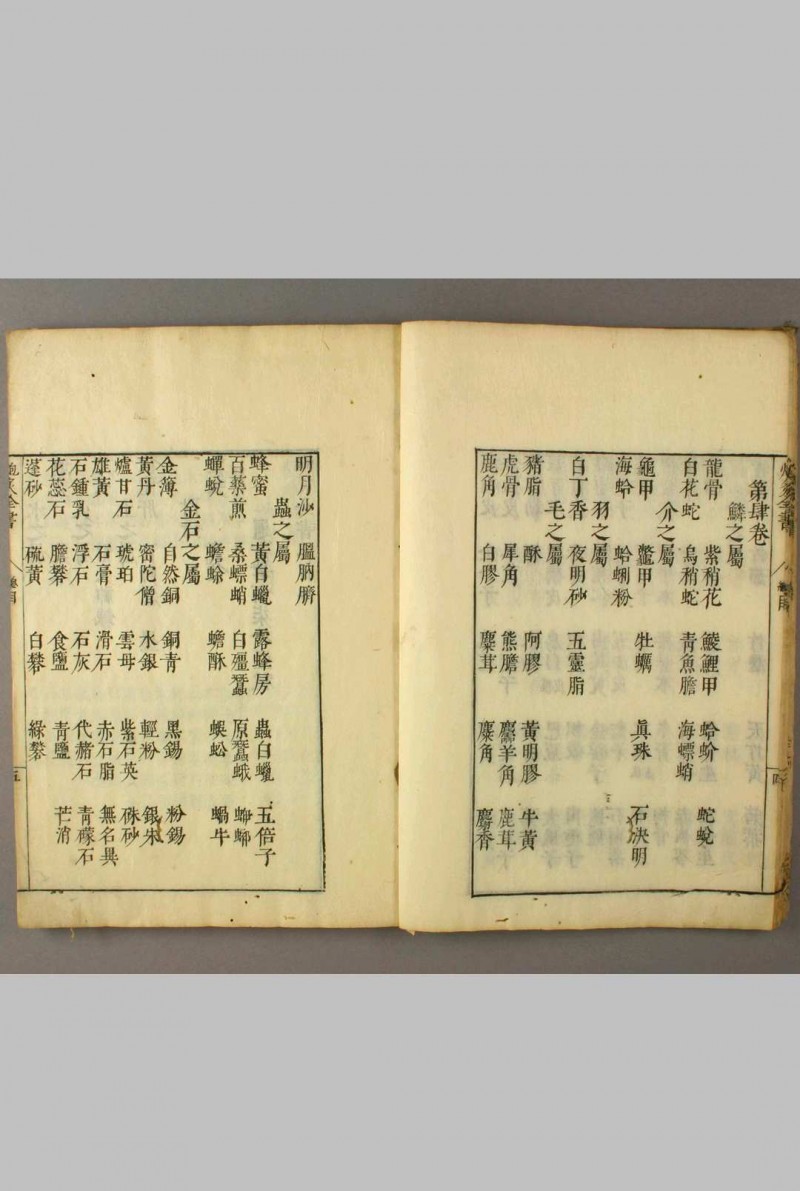 第肆卷
鱗之屬
龍骨 紫稍花 鯪鯉甲 蛤蚧 蛇蛻
白花蛇 烏稍蛇 青魚膽 海螵蛸
介之屬
龜甲 鱉甲 牡蠣 眞珠 石決明
海蛤 蛤蜊粉
羽之屬
白丁香 夜明砂 五靈脂
毛之屬
豬脂 酥 阿膠 黃明膠 牛黃
虎骨 犀角 熊膽 麢羊角 鹿茸
鹿角 白膠 麋茸 麋角 麝香
明月沙 膃肭臍
蟲之屬
蜂蜜 黃白蠟 露蜂房 蟲白蠟 五倍子
百藥煎 桑螵蛸 白殭蠶 原蠶蛾
蟬蛻 蟾蜍 蟾酥 蜈蚣 蝸牛
金石之屬
金薄 自然銅 銅青 黑錫 粉錫
黃丹 密陀僧 水銀 輕粉 銀朱
爐甘石 琥珀 雲母 紫石英 硃砂
雄黃 石膏 滑石 赤石脂 無名異
石鍾乳 浮石 石灰 代赭石 青礞石
花蕊石 膽礬 食鹽 青鹽 芒消
蓬砂 硫黃 白礬 綠礬
全書
五